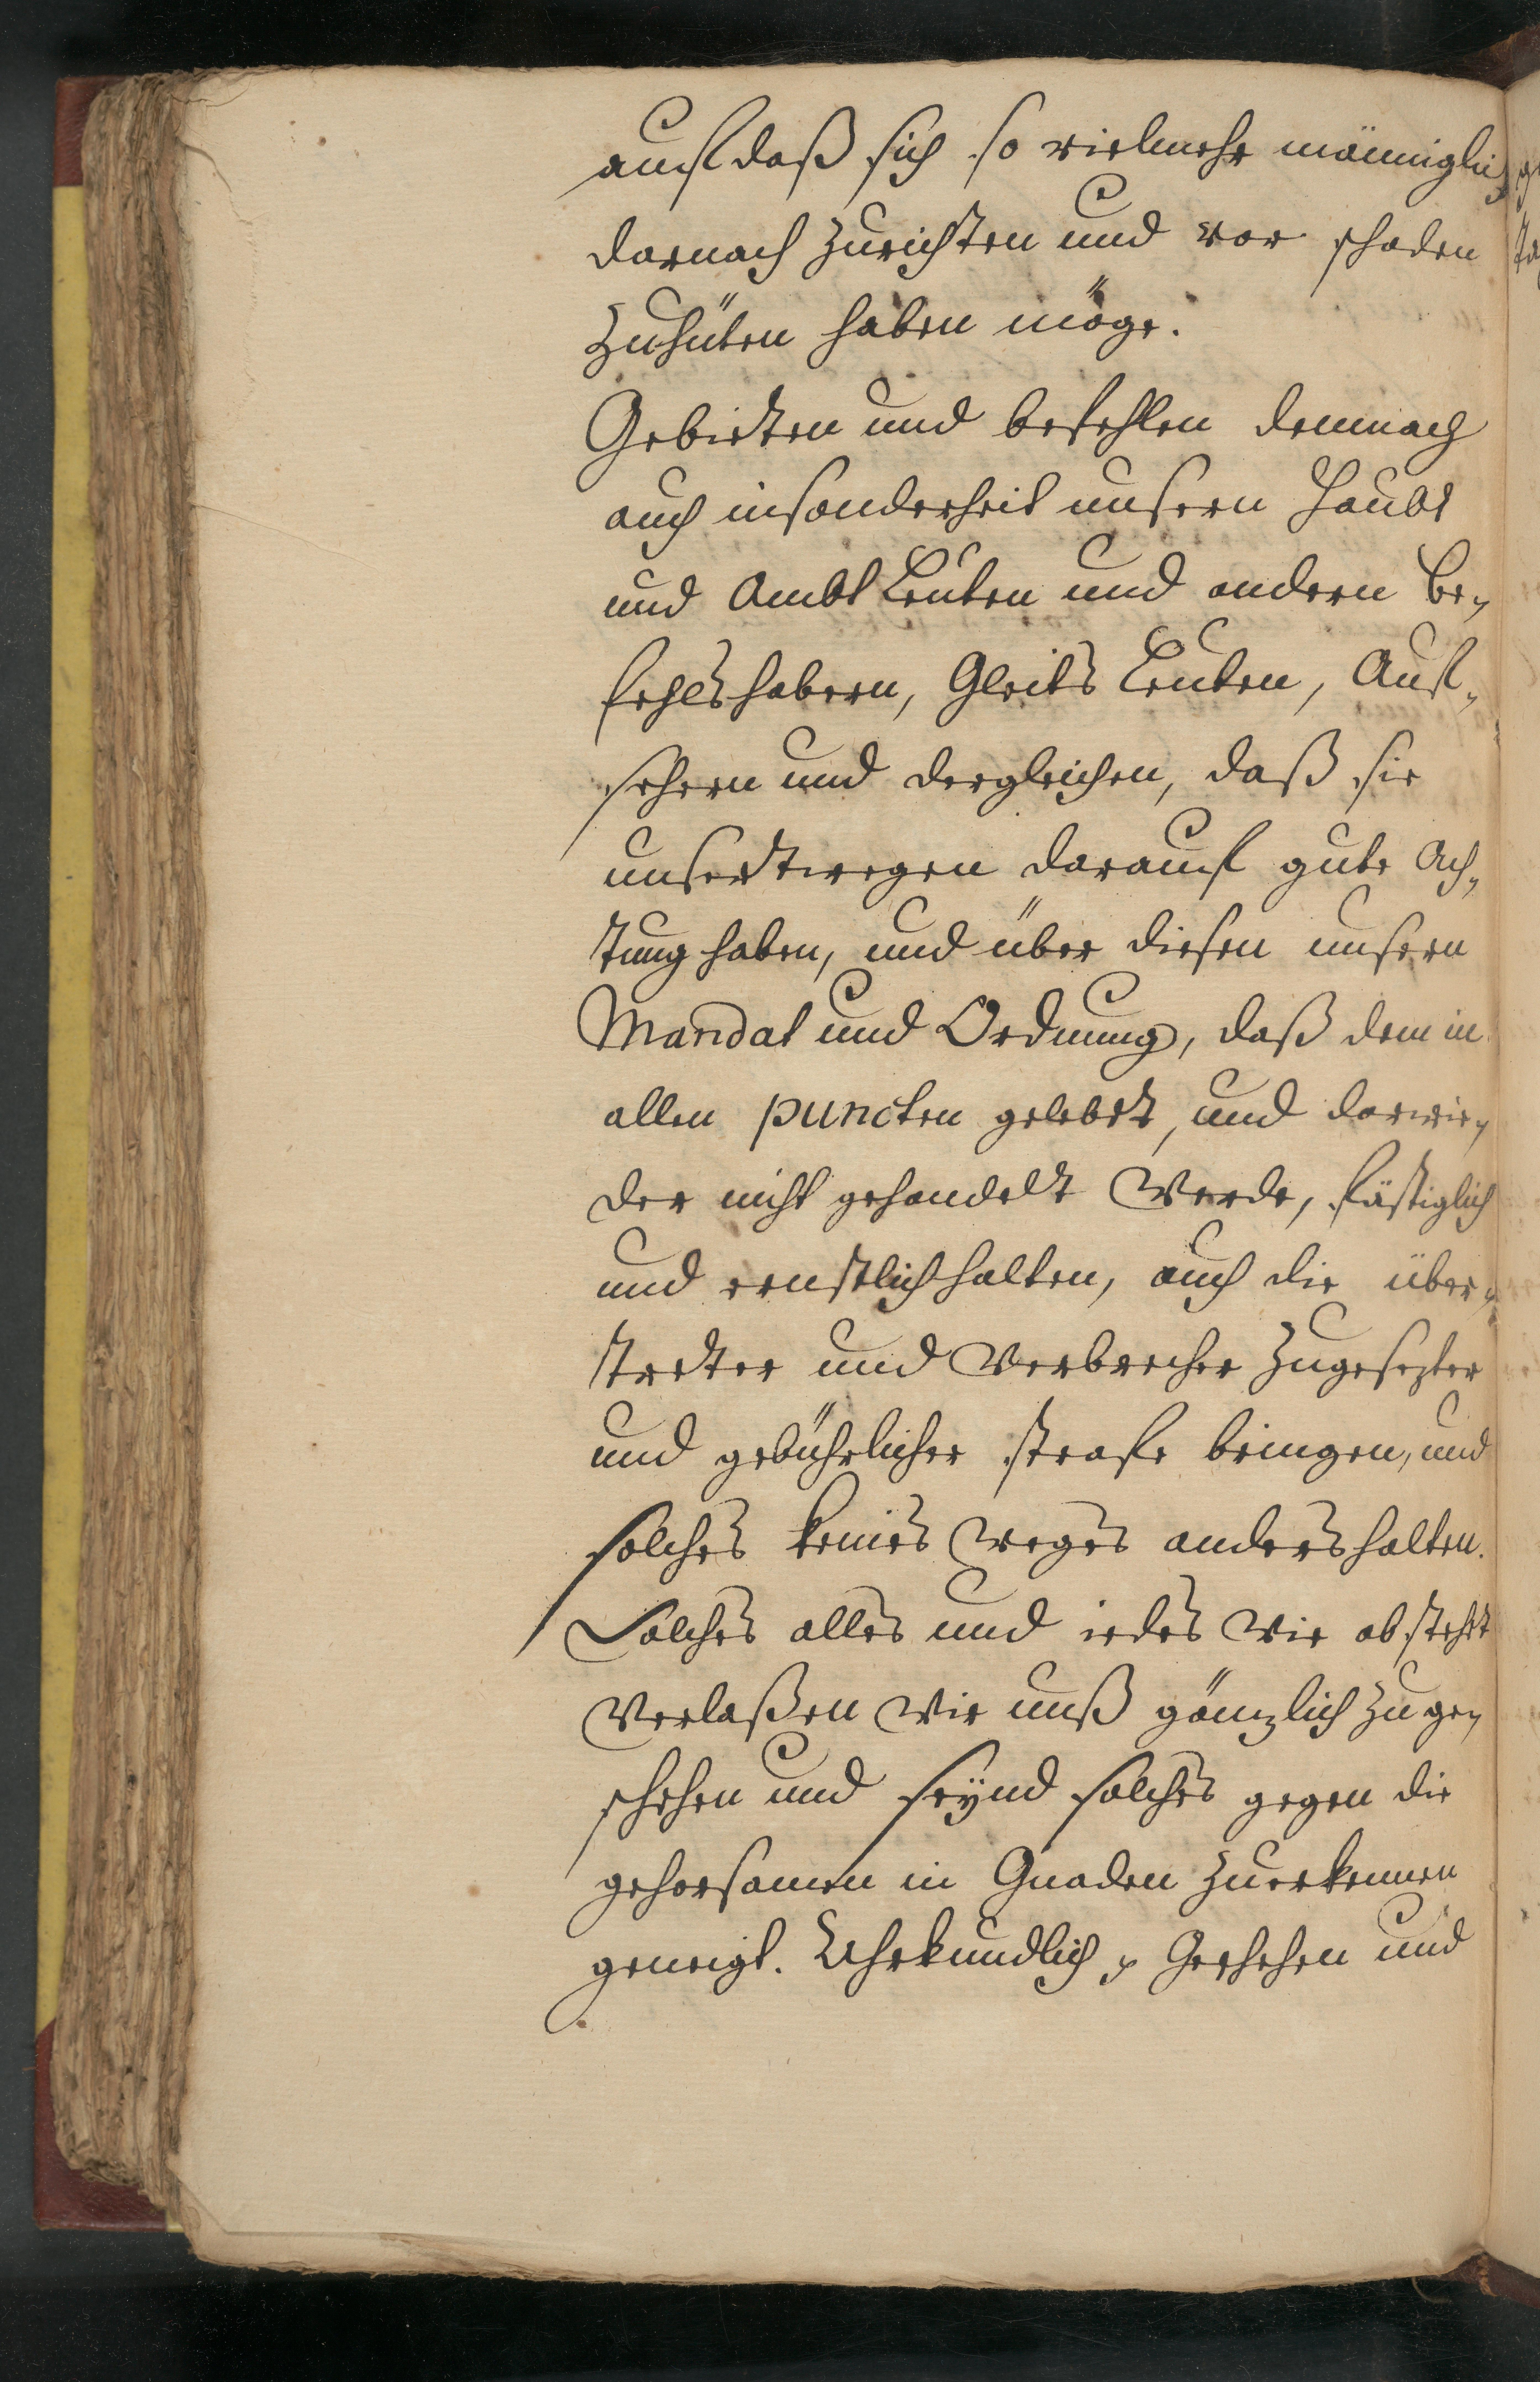 auf daß sich so vielmehr männiglich
darnach zurichten und vor schaden
zuhüten haben möge.
Gebieten und befehlen demnach
auch insonderheit unsern Haubt
und Ambt Leuten und andern Be-
fehlshabern, Gleits Leuten, Auf-
sehern und dergleichen, daß sie
unsertwegen darauf gute Ach-
tung haben, und über diesen unsern
Mandat und Ordnung, daß dem in
allen puncten gelebet, und darwie-
der nicht gehandelt werde, fästiglich
und ernstlich halten, auch die über-
tretter und Verbrecher zugesezter
und gebührlicher strafe bringen, und
solches keines weges anders halten.
Solches alles und iedes wie obstehet
Verlaßen wir unß gänzlich zu ge-
schehen und seynd solches gegen die
gehorsamen in Gnaden zuerkennen
geneigt. Uhrkundlich Geschehen und